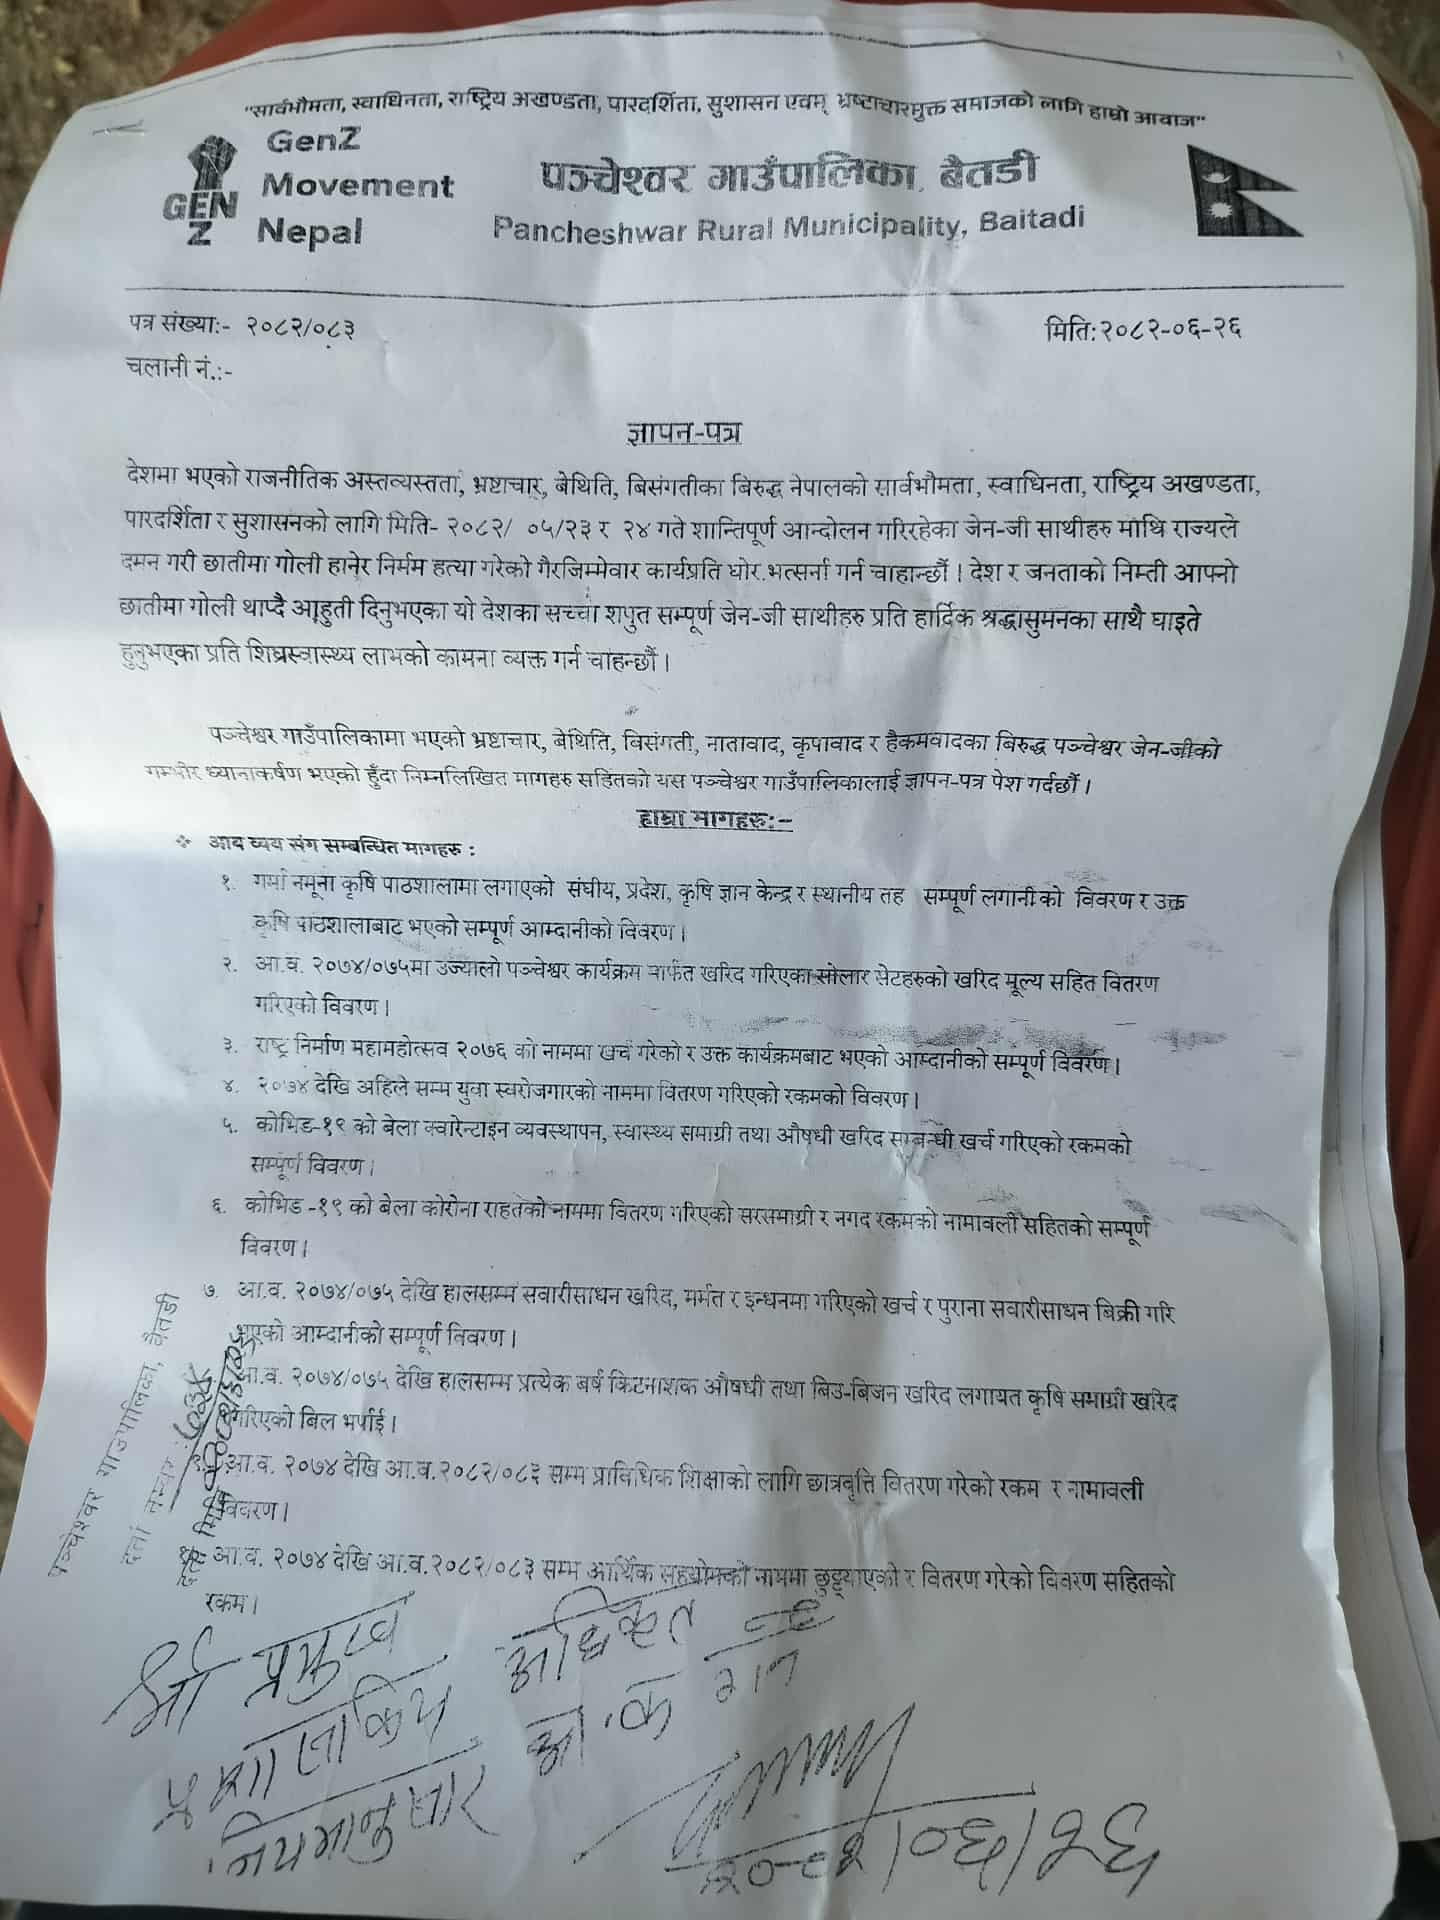 "सार्वभौमता, स्वाधिनता, राष्ट्रिय अखण्डता, पारदर्शिता, सुशासन एवम् भ्रष्टाचारमुक्त समाजको लागि हाम्रो आवाज"
GEN Z
GenZ
Movement
Nepal
पञ्चेश्वर गाउँपालिका, बैतडी
Pancheshwar Rural Municipality, Baitadi
पत्र संख्या:- २०८२/०८३
मिति:२०८२-०६-२६
चलानी नं.:-
ज्ञापन-पत्र
देशमा भएको राजनीतिक अस्तव्यस्तता, भ्रष्टाचार, बेथिति, बिसंगतीका बिरुद्ध नेपालको सार्वभौमता, स्वाधिनता, राष्ट्रिय अखण्डता,
पारदर्शिता र सुशासनको लागि मिति- २०८२/ ०५/२३ र २४ गते शान्तिपूर्ण आन्दोलन गरिरहेका जेन-जी साथीहरु माथि राज्यले
दमन गरी छातीमा गोली हानेर निर्मम हत्या गरेको गैरजिम्मेवार कार्यप्रति घोर भत्सर्ना गर्न चाहान्छौं । देश र जनताको निम्ती आफ्नो
छातीमा गोली थाप्दै आहुती दिनुभएका यो देशका सच्चा शपुत सम्पूर्ण जेन-जी साथीहरु प्रति हार्दिक श्रद्धासुमनका साथै घाइते
हुनुभएका प्रति शिघ्रस्वास्थ्य लाभको कामना व्यक्त गर्न चाहन्छौं ।
पञ्चेश्वर गाउँपालिकामा भएको भ्रष्टाचार, बेथिति, बिसंगती, नातावाद, कृपावाद र हैकमवादका बिरुद्ध पञ्चेश्वर जेन-जीको
गम्भीर ध्यानाकर्षण भएको हुँदा निम्नलिखित मागहरु सहितको यस पञ्चेश्वर गाउँपालिकालाई ज्ञापन-पत्र पेश गर्दछौं ।
हाम्रा मागहरु:-
❖ आय व्यय संग सम्बन्धित मागहरु :
१. गर्मा नमूना कृषि पाठशालामा लगाएको संघीय, प्रदेश, कृषि ज्ञान केन्द्र र स्थानीय तह सम्पूर्ण लगानी को विवरण र उक्त
कृषि पाठशालाबाट भएको सम्पूर्ण आम्दानीको विवरण ।
२. आ.व. २०७४/०७५मा उज्यालो पञ्चेश्वर कार्यक्रम मार्फत खरिद गरिएका सोलार सेटहरुको खरिद मूल्य सहित वितरण
गरिएको विवरण ।
३. राष्ट्र निर्माण महामहोत्सव २०७६ को नाममा खर्च गरेको र उक्त कार्यक्रमबाट भएको आम्दानीको सम्पूर्ण विवरण ।
४. २०७४ देखि अहिले सम्म युवा स्वरोजगारको नाममा वितरण गरिएको रकमको विवरण ।
५. कोभिड-१९ को बेला क्वारेन्टाइन व्यवस्थापन, स्वास्थ्य समाग्री तथा औषधी खरिद सम्बन्धी खर्च गरिएको रकमको
सम्पूर्ण विवरण ।
६. कोभिड -१९ को बेला कोरोना राहतको नाममा वितरण गरिएको सरसमाग्री र नगद रकमको नामावली सहितको सम्पूर्ण
विवरण ।
७. आ.व. २०७४/०७५ देखि हालसम्म सवारीसाधन खरिद, मर्मत र इन्धनमा गरिएको खर्च र पुराना सवारीसाधन बिक्री गरि
भएको आम्दानीको सम्पूर्ण विवरण ।
आ.व. २०७४/०७५ देखि हालसम्म प्रत्येक बर्ष किटनाशक औषधी तथा बिउ-बिजन खरिद लगायत कृषि समाग्री खरिद
गरिएको बिल भर्पाई ।
९. आ.व. २०७४ देखि आ.व.२०८२/०८३ सम्म प्राविधिक शिक्षाको लागि छात्रवृत्ति वितरण गरेको रकम र नामावली
विवरण ।
आ.व. २०७४ देखि आ.व.२०८२/०८३ सम्म आर्थिक सहयोगको नाममा छुट्ट्याएको र वितरण गरेको विवरण सहितको
रकम ।
पञ्चेश्वर गाउँपालिका, बैतडी
दर्ता नम्बर :
दर्ता मिति
श्री प्रमुख
प्रशासकिय अधिकृत
नियमानुसार
२०८२/०६/२६